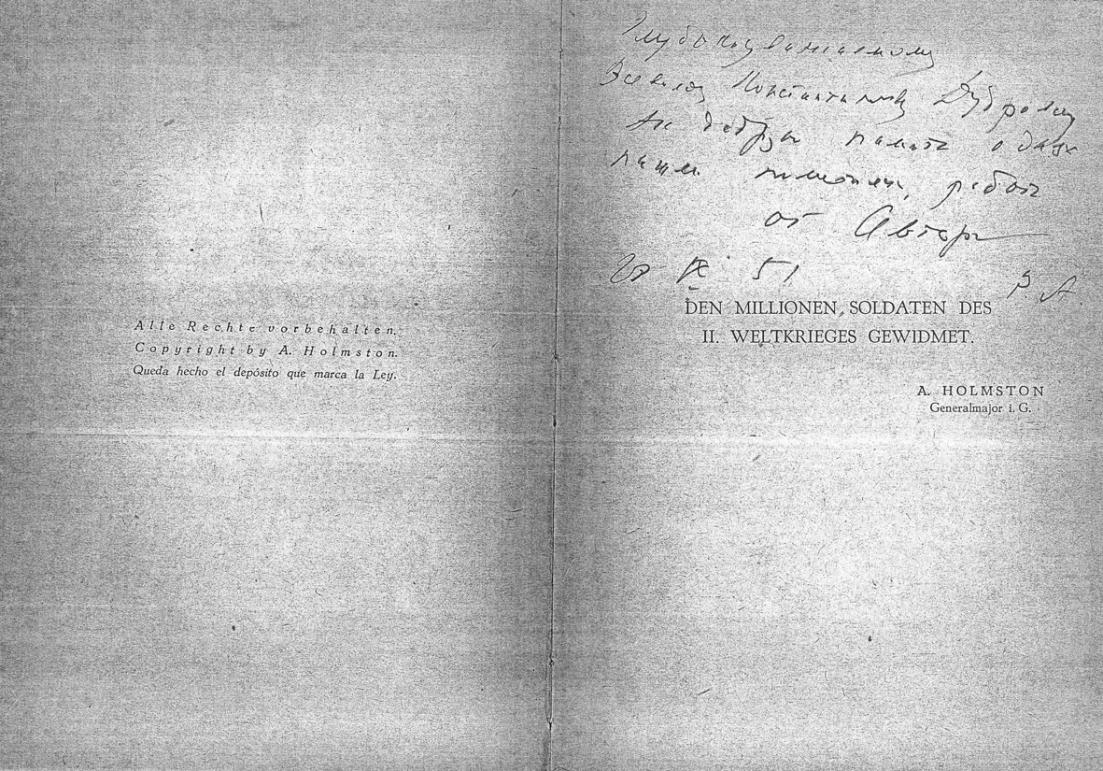 Alle Rechte vorbehalten.
Copyright by A. Holmston.
Queda hecho el depósito que marca la Ley.
Глубокоуважаемому
Всеволоду Константиновичу Дубровскому
На добрую память о днях
нашей работы
от Автора
IX 51
DEN MILLIONEN SOLDATEN DES
II. WELTKRIEGES GEWIDMET.
A. HOLMSTON
Generalmajor i. G.